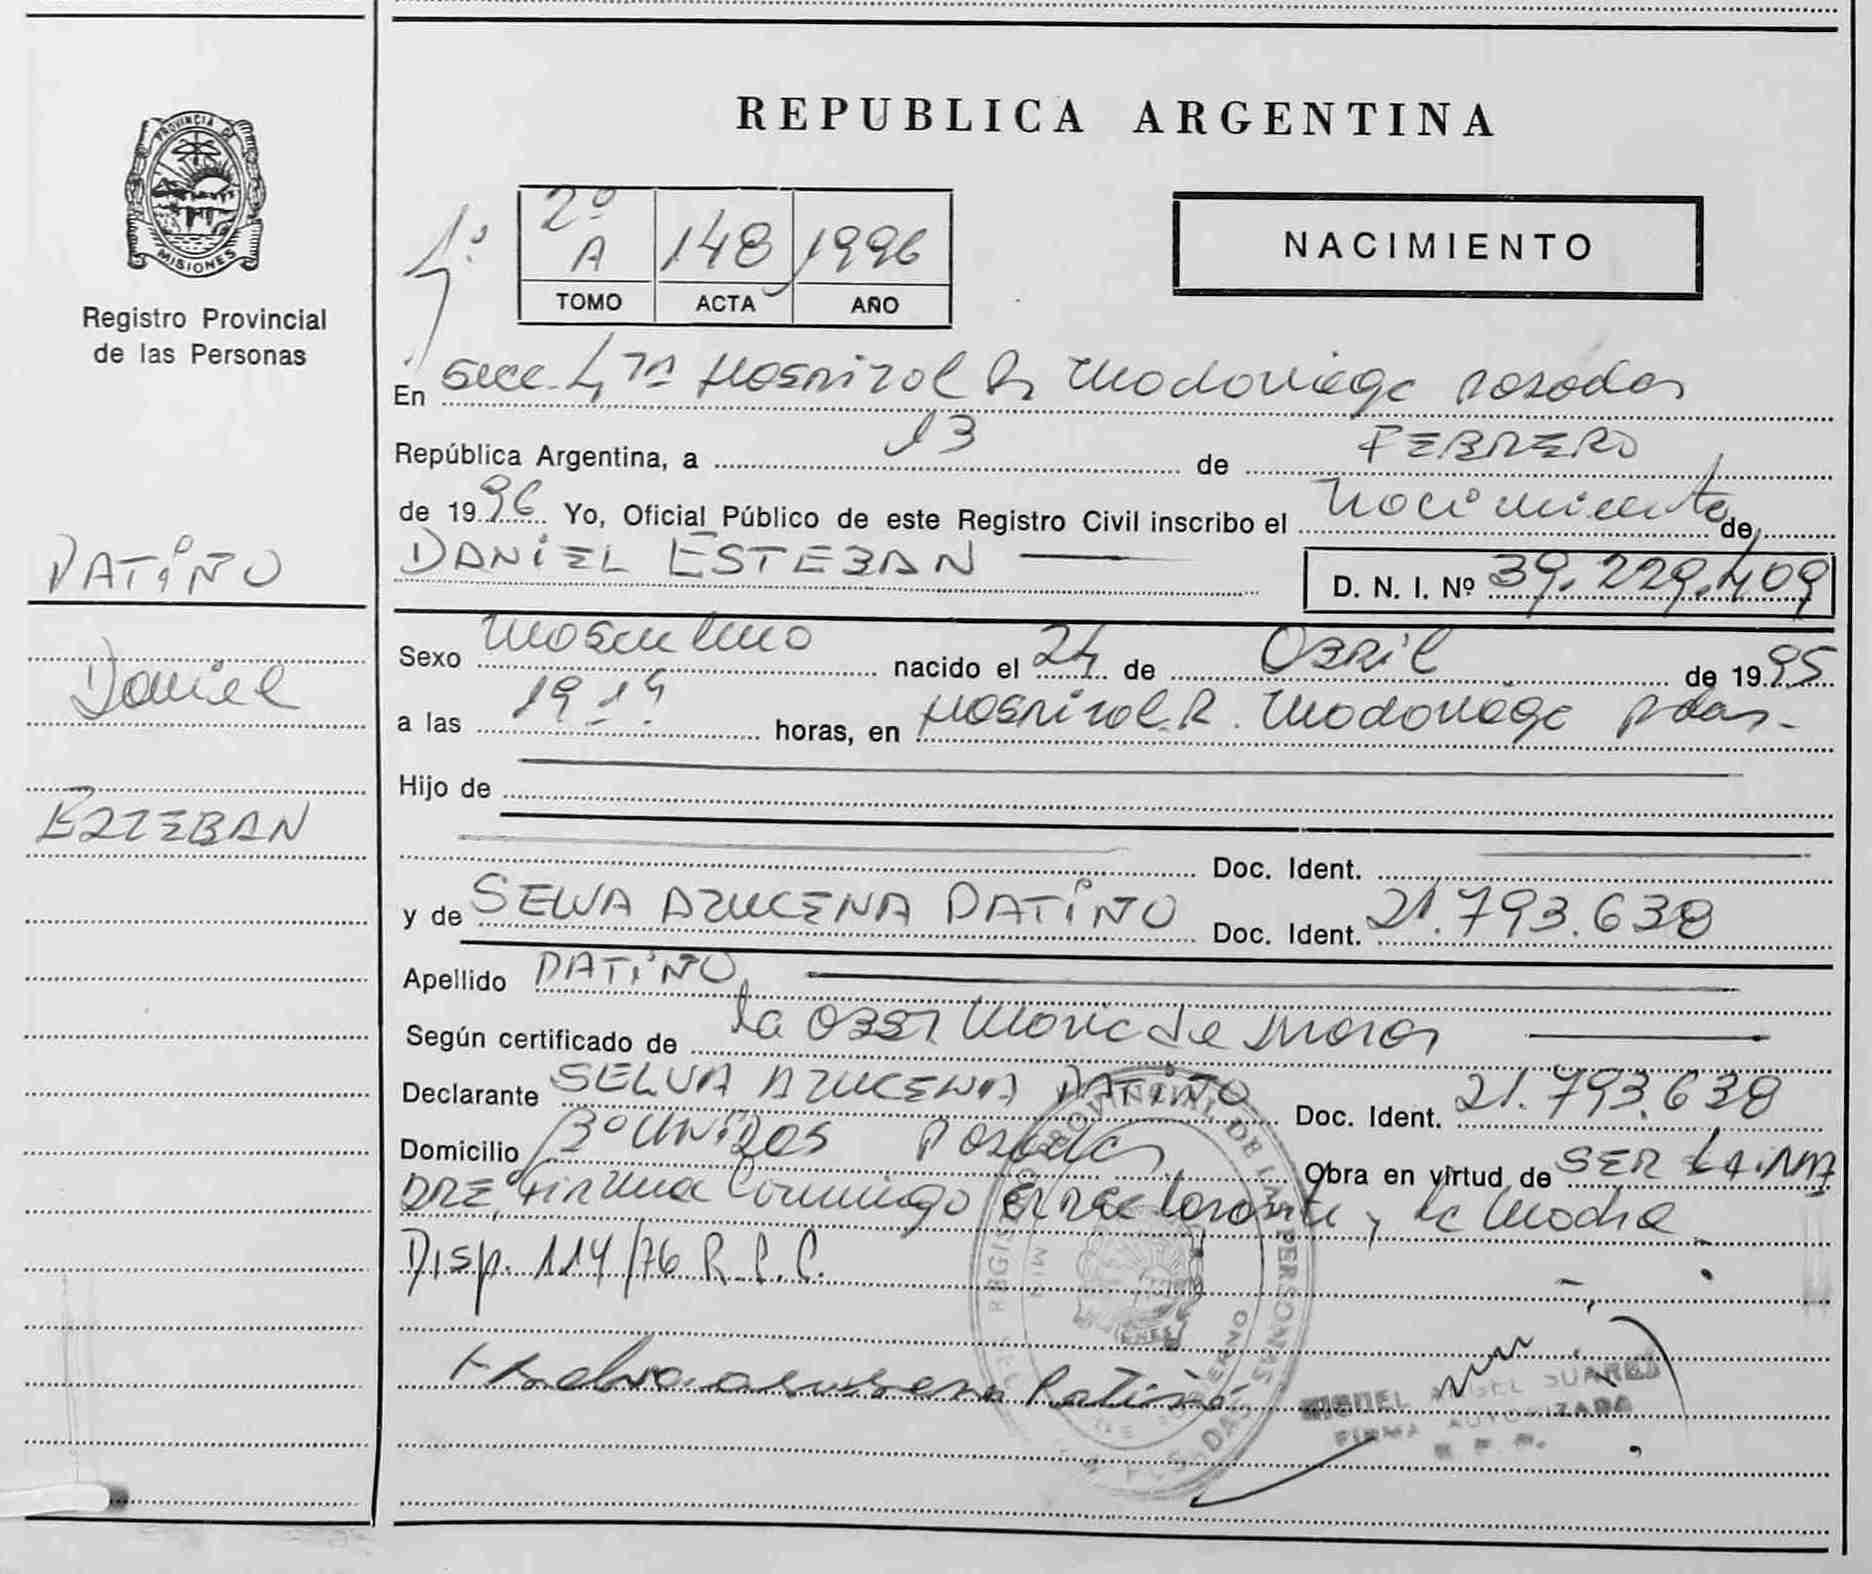 PROVINCIA DE
MISIONES
Registro Provincial
de las Personas
PATIÑO
Daniel
ESTEBAN
REPUBLICA ARGENTINA
1º
2º A 148 1996
TOMO ACTA AÑO
NACIMIENTO
En Secc. 1ra Hospital R. Madariaga Posadas
República Argentina, a 13 de FEBRERO
de 1996 Yo, Oficial Público de este Registro Civil inscribo el nacimiento de
DANIEL ESTEBAN
D. N. I. Nº 39.229.409
Sexo masculino nacido el 24 de Abril de 1995
a las 19 14 horas, en Hospital R. Madariaga Pdas-
Hijo de
Doc. Ident.
y de SELVA AZUCENA PATIÑO Doc. Ident. 21.793.638
Apellido PATIÑO
Según certificado de la Obst María de
Declarante SELVA AZUCENA PATIÑO Doc. Ident. 21.793.638
Domicilio Bº UNIDOS Posadas Obra en virtud de SER LA MA
DRE, Firma Conmigo la madre
Disp. 114/76 R.P.C.
Selva asusena Patiño
REGISTRO PROVINCIAL DE LAS PERSONAS
MIGUEL ANGEL SUAREZ
FIRMA AUTORIZADA
R. P. P.